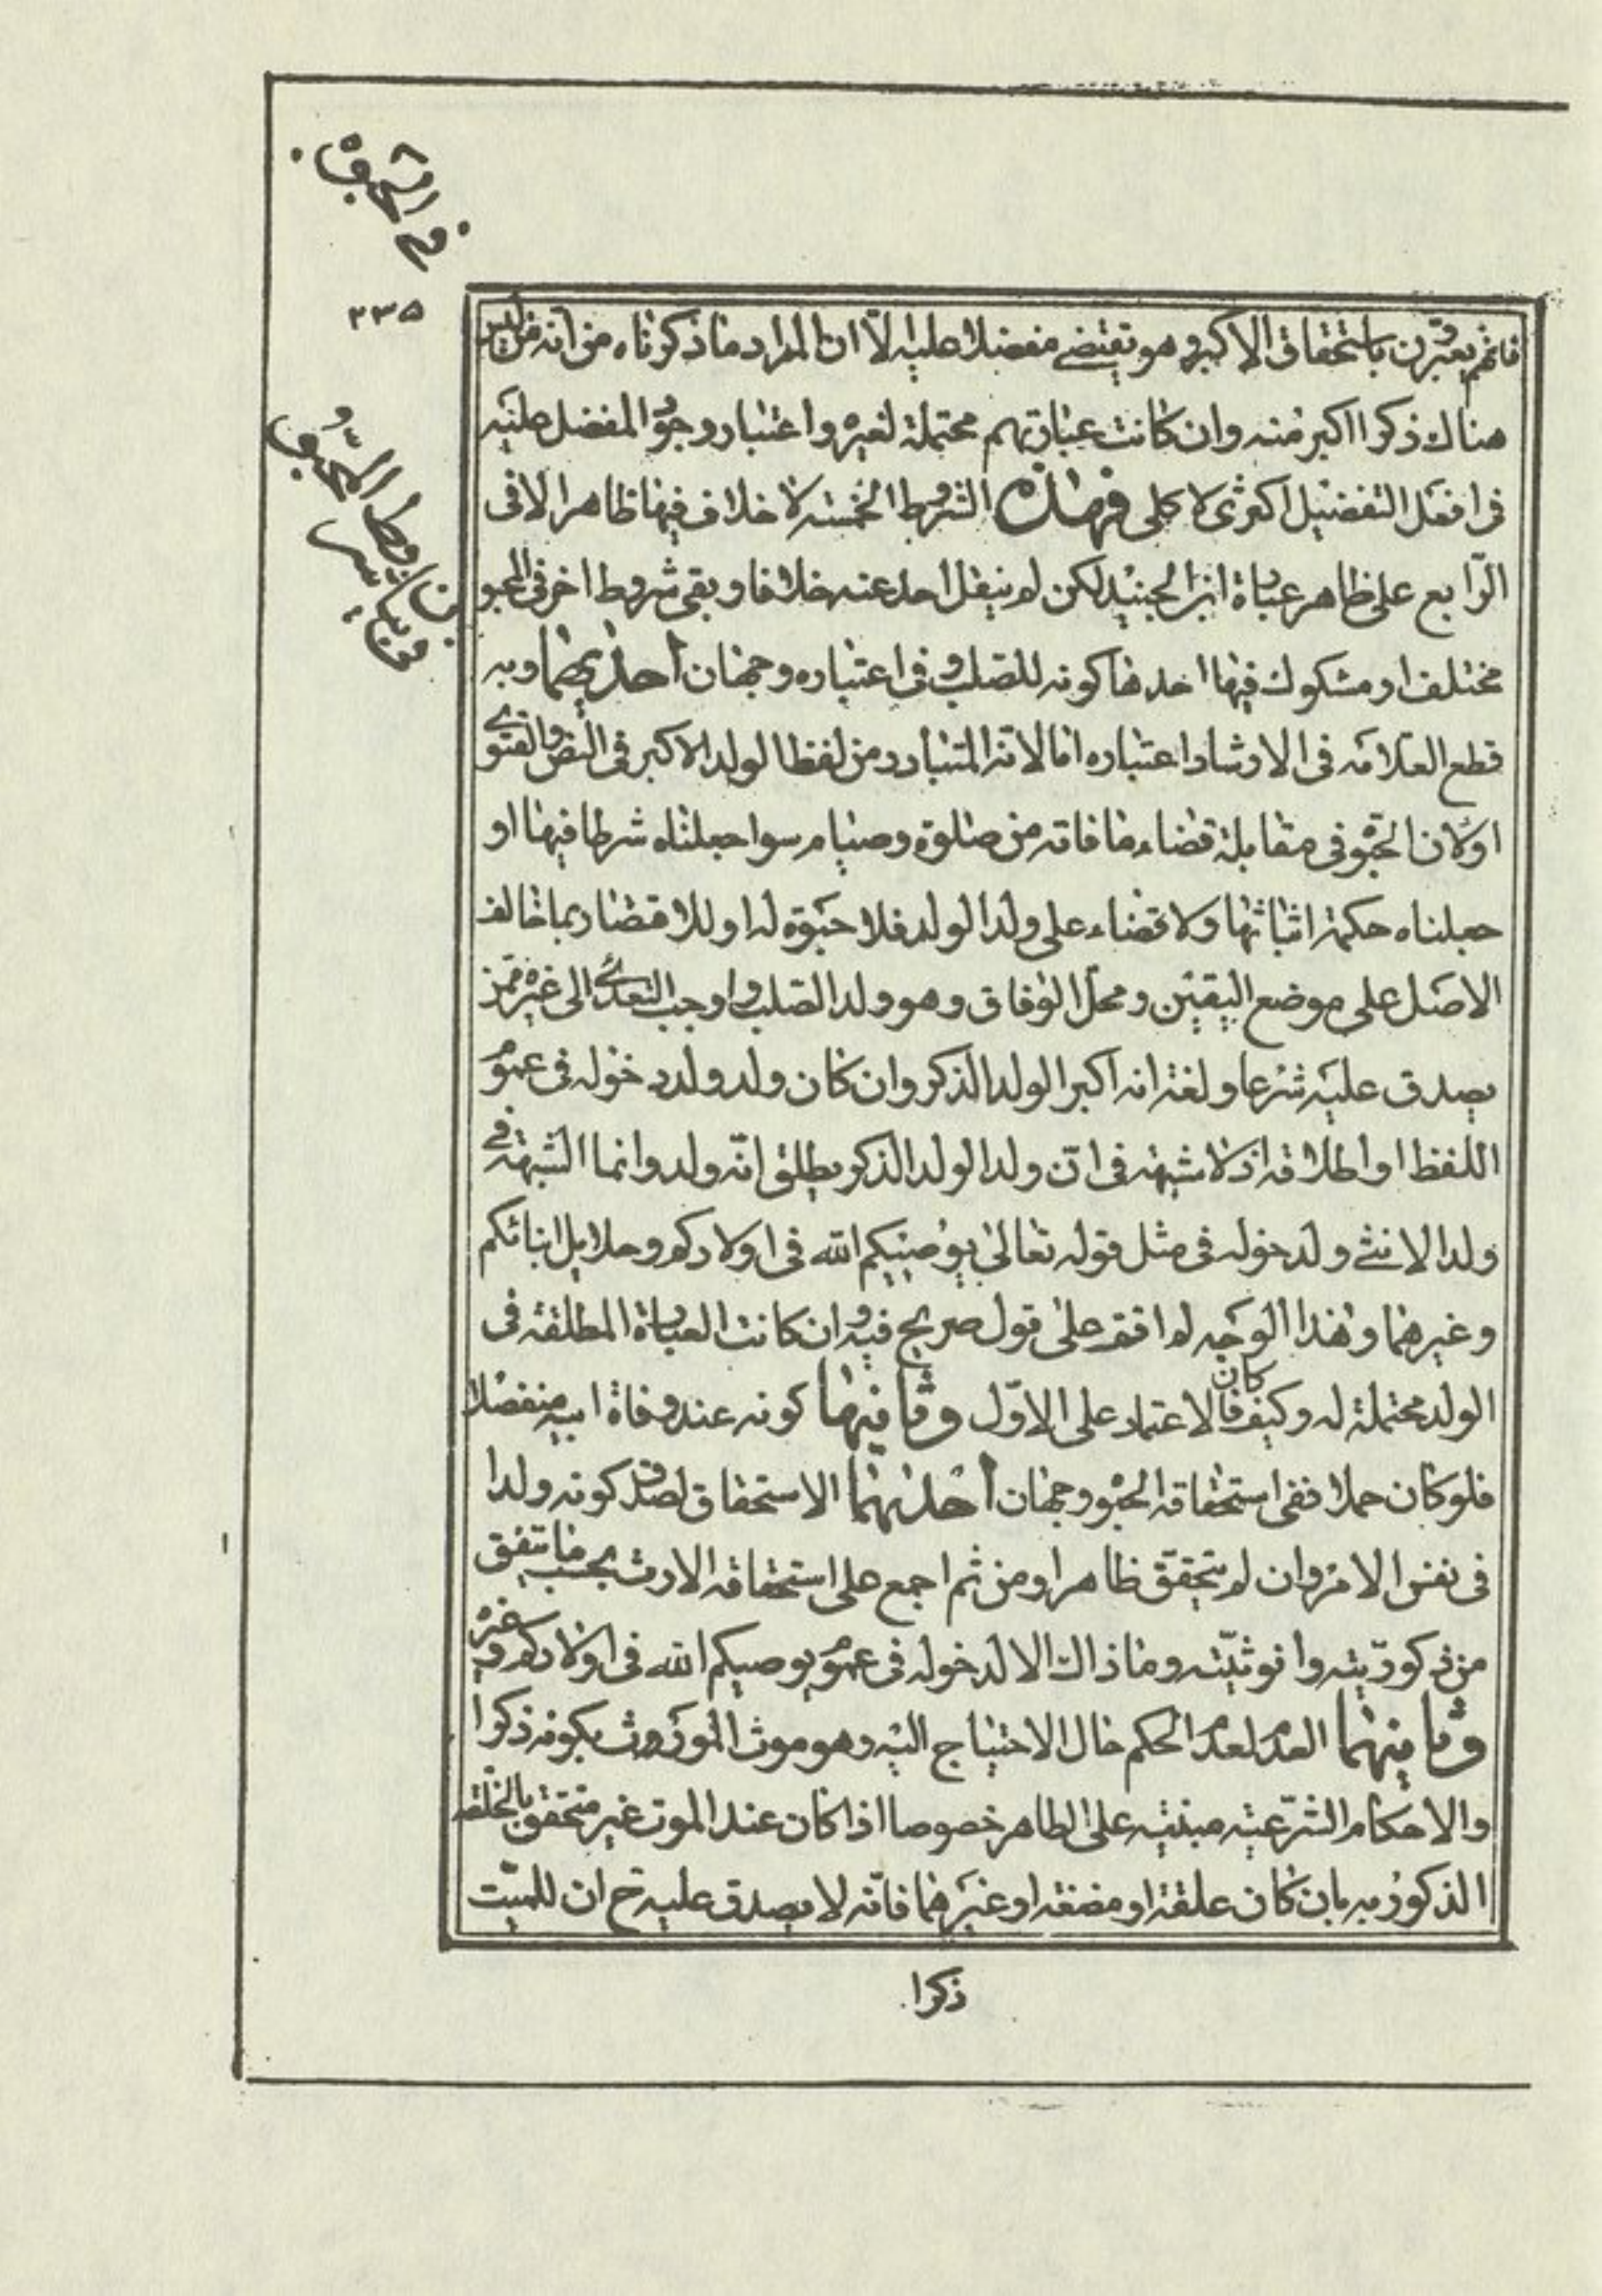 ٢٣٥
فانهم يعبّرون باستحقاق الاكبر وهو يقتضى مفضلا عليه الّا ان المراد ما ذكرناه من انه من ليس
هناك ذكرا اكبر منه وان كانت عبارتهم محتملة لغيره واعتبار وجود المفضل عليه
فى افعل التفضيل اكثرى لا كلى فهذه الشروط الخمسة لا خلاف فيها ظاهرا الا فى
الرّابع على ظاهر عبارة ابن الجنيد لكن لم ينقل احد عنه خلافا وبقى شروط اخر فى المحبو
مختلف او مشكوك فيها احدها كونه للصلب وفى اعتباره وجهان احدهما وبه
قطع العلامة فى الارشاد اعتباره اما لانه المتبادر من لفظ الولد الاكبر فى النص والفتوى
او لان الحبوة فى مقابلة قضاء ما فاته من صلوة وصيام سوا جعلناه شرطا فيها او
جعلناه حكمة اثباتها ولا قضاء على ولد الولد فلا حبوة له او للاقتصار بما خالف
الاصل على موضع اليقين ومحل الوفاق وهو ولد الصلب واوجب التعدى الى غيره ممن
يصدق عليه شرعا ولغة انه اكبر الولد الذكر وان كان ولد ولد دخوله فى عموم
اللفظ او اطلاقه اذ لا شبهة فى ان ولد الولد الذكر يطلق انّه ولد وانما الشبهة فى
ولد الانثى ولدخوله فى مثل قوله تعالى يوصيكم الله فى اولادكم وحلايل ابنائكم
وغيرهما وهذا الوجه لم اقف على قول صريح فيه وان كانت العبارة المطلقة فى
الولد محتملة له وكيف كان فالاعتماد على الاوّل وثانيها كونه عند وفاة ابيه منفصلا
فلو كان حملا ففى استحقاقه الحبوة وجهان احدهما الاستحقاق لصدق كونه ولدا
فى نفس الامر وان لم يتحقق ظاهرا ومن ثم اجمع على استحقاقه الارث بحسب ما يتفق
من ذكوريّته وانوثيّته وما ذاك الا لدخوله فى عموم يوصيكم الله فى اولادكم وغيره
وثانيهما العدم لعدم الحكم حال الاحتياج اليه وهو موت الموروث بكونه ذكرا
والاحكام الشرعيّة مبنيّة على الظاهر خصوصا اذا كان عند الموت غير متحقق بالخلقة
الذكورية بان كان علقة او مضغة او غيرهما فانّه لا يصدق عليه ح ان للميّت
ذكرا